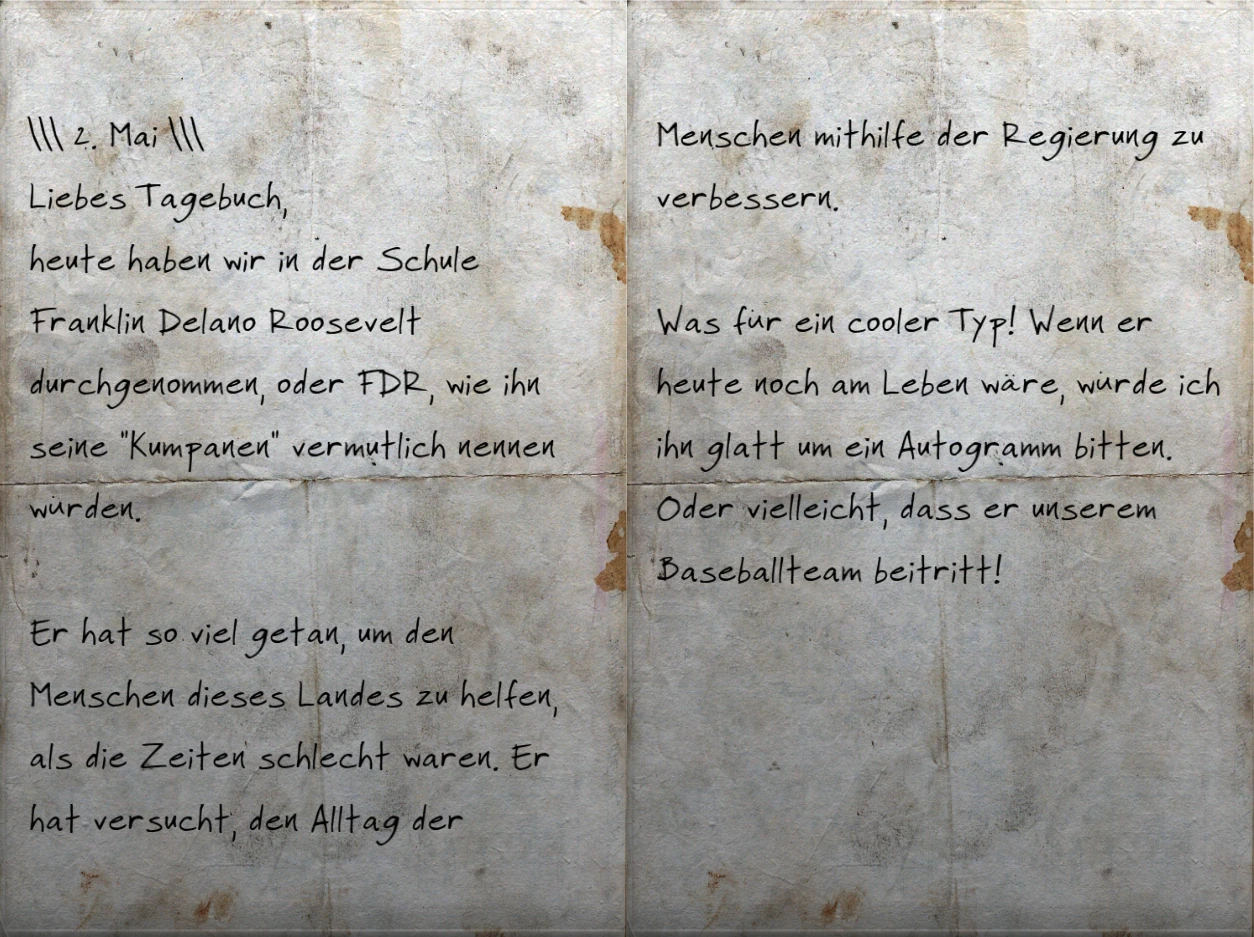 \\\ 2. Mai \\\
Liebes Tagebuch,
heute haben wir in der Schule
Franklin Delano Roosevelt
durchgenommen, oder FDR, wie ihn
seine "Kumpanen" vermutlich nennen
würden.
Er hat so viel getan, um den
Menschen dieses Landes zu helfen,
als die Zeiten schlecht waren. Er
hat versucht, den Alltag der
Menschen mithilfe der Regierung zu
verbessern.
Was für ein cooler Typ! Wenn er
heute noch am Leben wäre, würde ich
ihn glatt um ein Autogramm bitten.
Oder vielleicht, dass er unserem
Baseballteam beitritt!